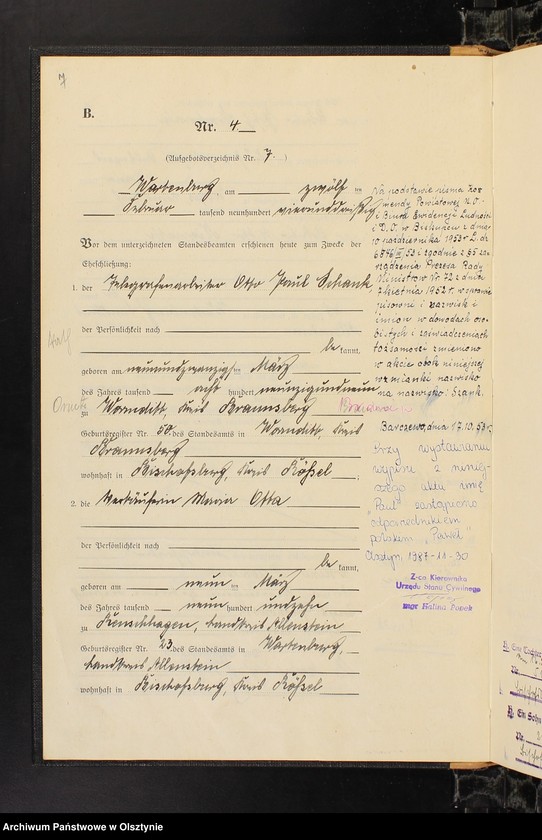 7
B.
Nr. 4
(Aufgebotsverzeichnis Nr. 7.)
Wartenburg, am zwölften
Februar tausend neunhundert vierunddreißig
Vor dem unterzeichneten Standesbeamten erschienen heute zum Zwecke der
Eheschließung:
1. der Telegrafenarbeiter Otto Paul Schank
der Persönlichkeit nach
be kannt,
geboren am neunundzwanzigsten März
des Jahres tausend acht hundert neunzigundneun
zu Wormditt, Kreis Braunsberg
Geburtsregister Nr. 50 des Standesamts in Wormditt, Kreis
Braunsberg
wohnhaft in Bischofsburg, Kreis Rößel ;
2. die Verkäuferin Maria Otta
der Persönlichkeit nach
be kannt,
geboren am neunten März
des Jahres tausend neun hundert undzehn
zu Lengshagen, Landkreis Allenstein
Geburtsregister Nr. 23 des Standesamts in Wartenburg,
Landkreis Allenstein
wohnhaft in Bischofsburg, Kreis Rößel
Na podstawie pisma Ko-
mendy Powiatowej M.O.
i Biura Ewidencji Ludności
i D.O. w Biskupcu z dnia
października 1953 r. L.dz.
i zgodnie z § 5 za-
rządzenia Prezesa Rady
Ministrów Nr 72 z dnia
7 kwietnia 1952 r. w sprawie
pisowni i nazwisk i
imion w dowodach oso-
bistych i zaświadczeniach
tożsamości zmieniono
w akcie obok niniejszej
wzmianki nazwisko
na nazwisko: Szank.
Barczewo, dnia 17.10.53 r.
Przy wystawianiu
wypisu z niniej-
szego aktu imię
"Paul" zastąpiono
odpowiednikiem
polskim "Paweł"
Olsztyn, 1987-11-30
Z-ca Kierownika
Urzędu Stanu Cywilnego
mgr Halina Popek
Nr.
Ein Sohn
Nr.
Archiwum Państwowe w Olsztynie